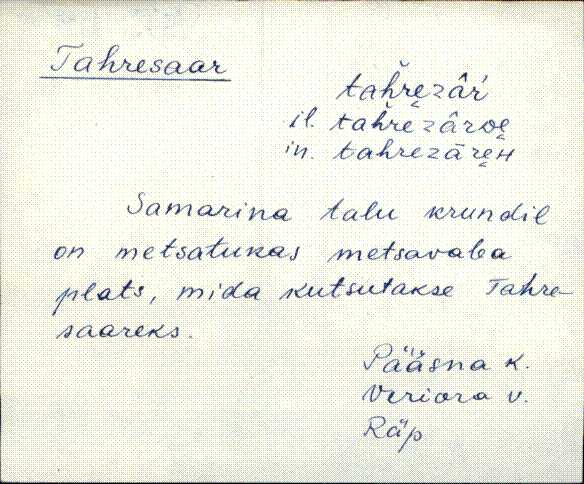 Tahresaar
tahŕ̌e̮zâŕ
il. tahŕ̌e̮zâroe̮
in. tahrezāre̮н
Samarina talu krundil
on metsatukas metsavaba
plats, mida kutsutakse Tahre-
saareks.
Pääsna k.
Veriora v.
Räp